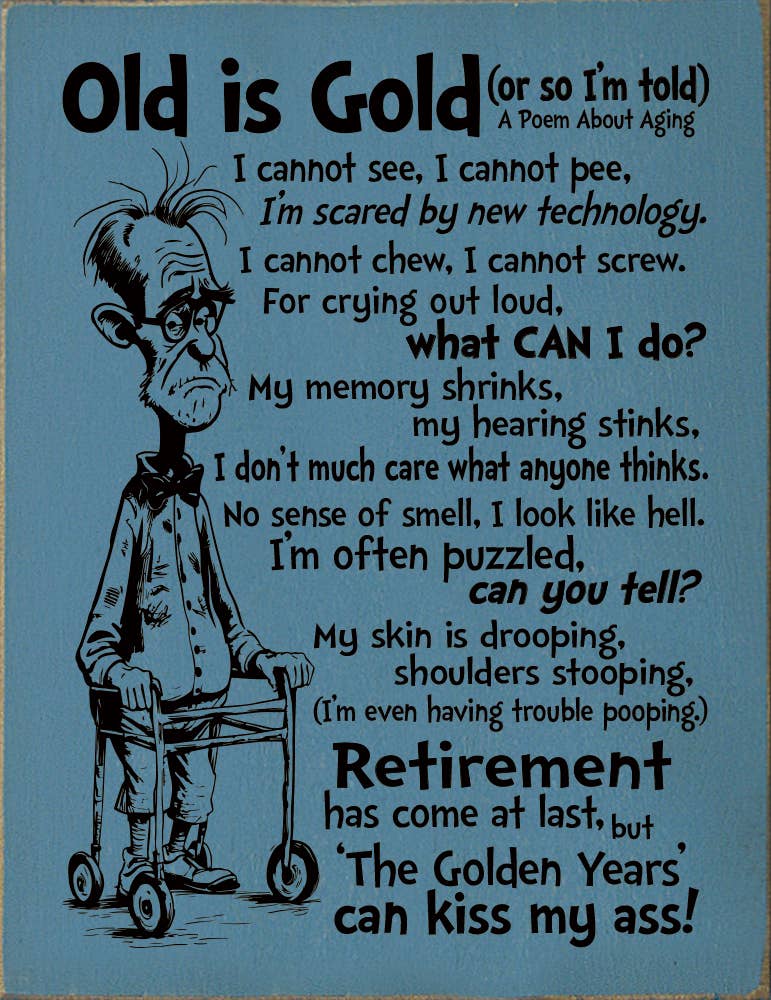 Old is Gold (or so I'm told)
A Poem About Aging
I cannot see, I cannot pee,
I'm scared by new technology.
I cannot chew, I cannot screw.
For crying out loud,
what CAN I do?
My memory shrinks,
my hearing stinks,
I don't much care what anyone thinks.
No sense of smell, I look like hell.
I'm often puzzled,
can you tell?
My skin is drooping,
shoulders stooping,
(I'm even having trouble pooping.)
Retirement
has come at last, but
'The Golden Years'
can kiss my ass!